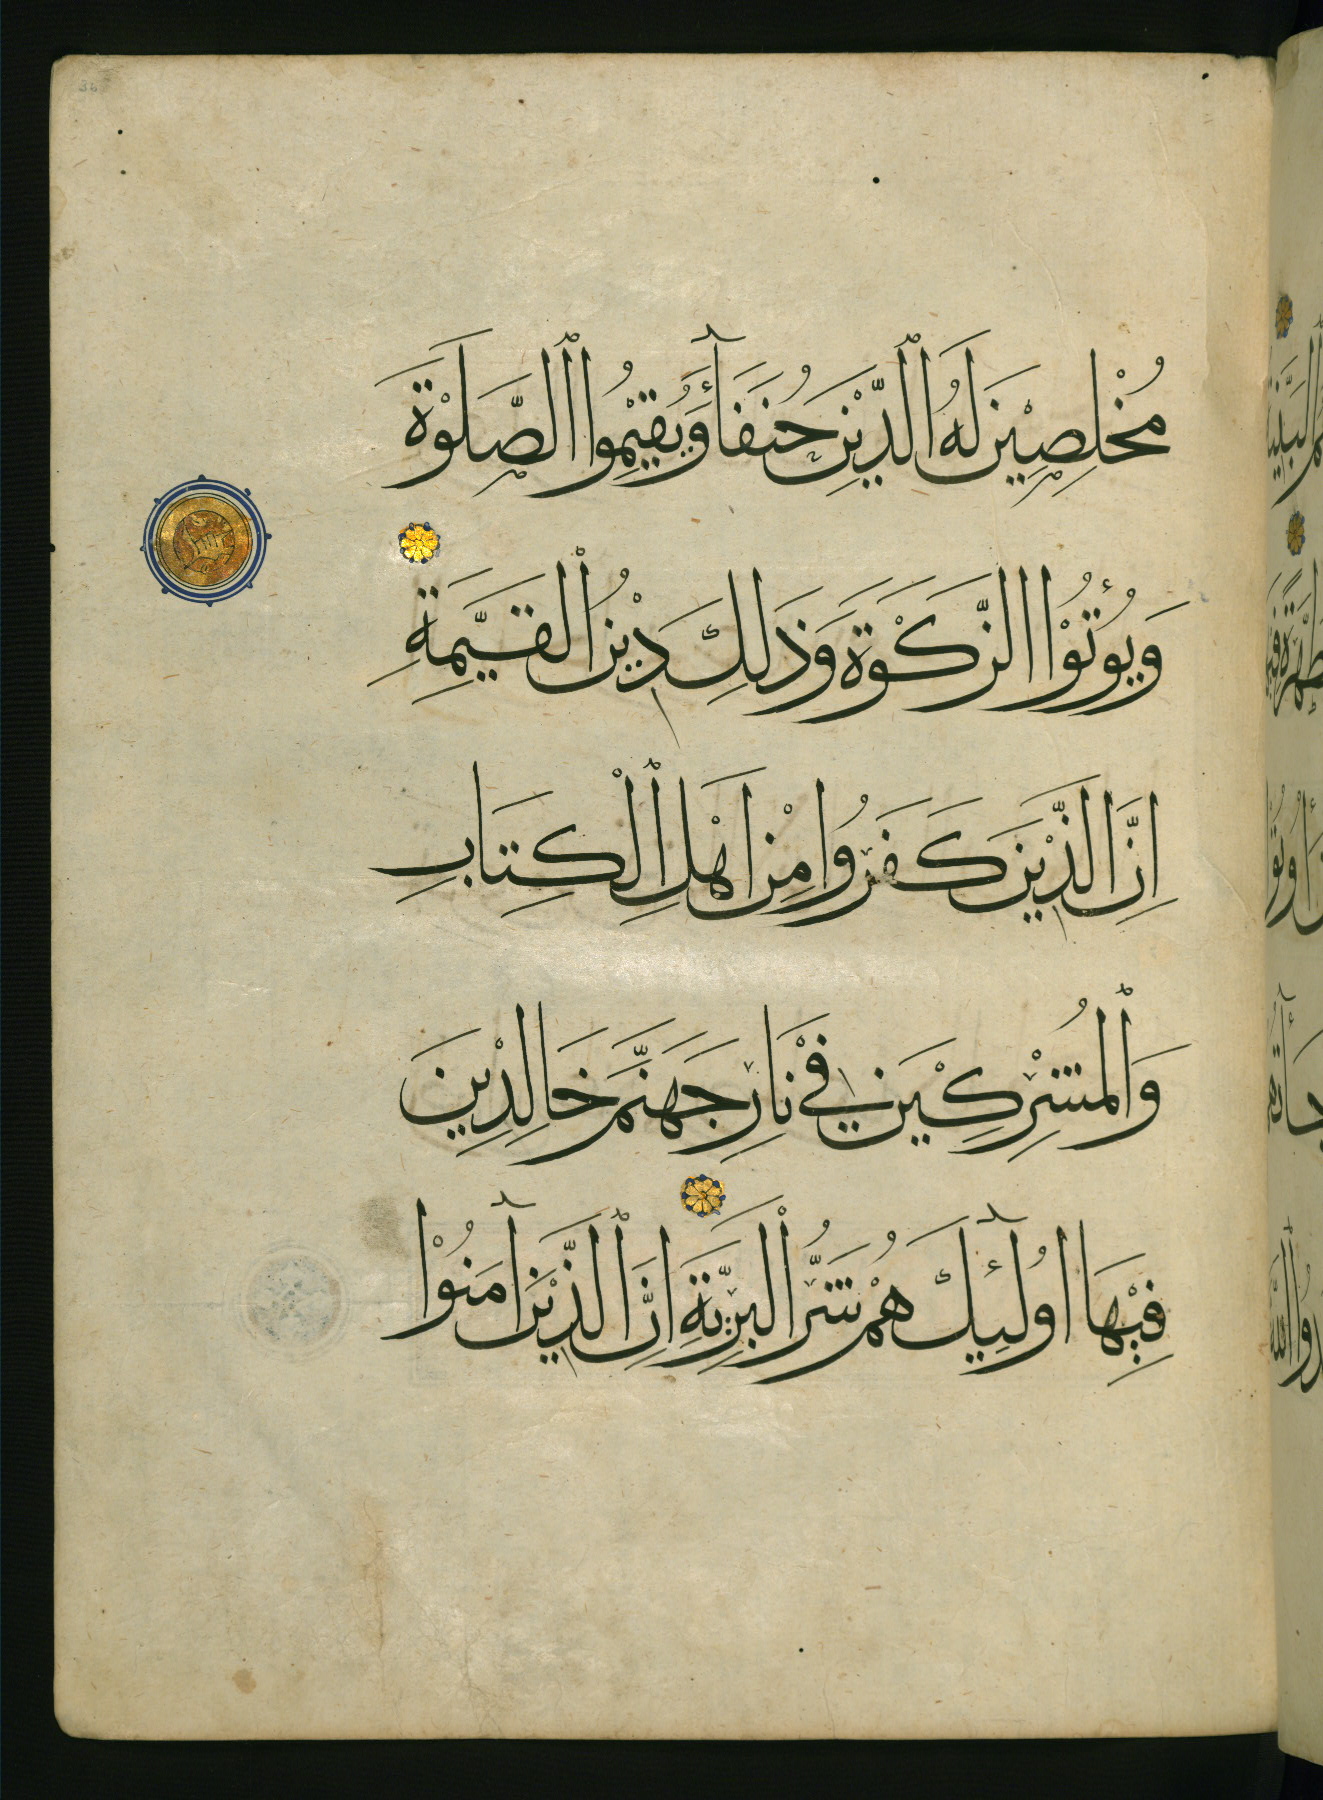 مُخْلِصِيْنَ لَهُ ٱلدِّيْنَ حُنَفَآءَ وَيُقِيْمُوا ٱلصَّلَوْةَ
وَيُؤْتُوْا الزَّكَوْةَ وَذَلِكَ دِيْنُ ٱلْقَيِّمَةِ
اِنَّ الَّذِيْنَ كَفَرُوا مِنْ اَهْلِ ٱلْكِتَابِ
وَٱلْمُشْرِكِيْنَ فِيْ نَارِ جَهَنَّمَ خَالِدِيْنَ
فِيْهَا اُولَٓئِكَ هُمْ شَرُّ ٱلْبَرِيَّةِ اِنَّ ٱلَّذِيْنَ آمَنُوْا